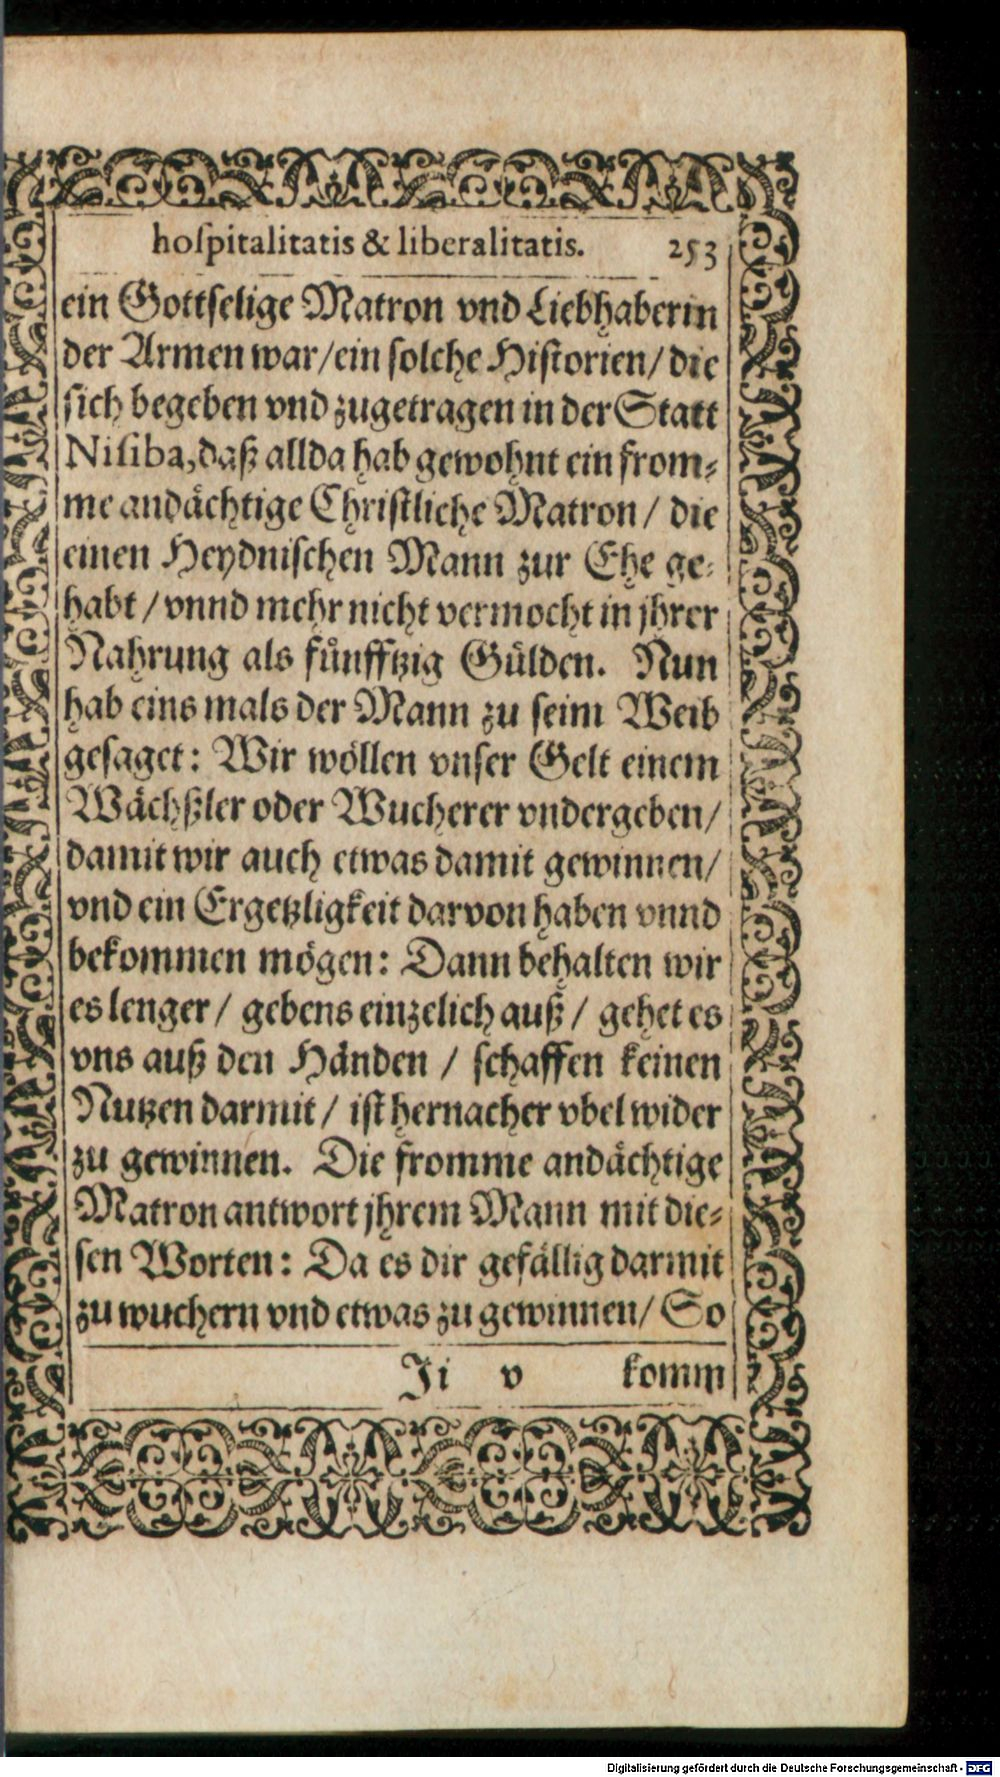 hoſpitalitatis & liberalitatis. 253
ein Gottſelige Matron vnd Liebhaberin
der Armen war/ein ſolche Hiſtorien/ die
ſich begeben vnd zugetragen in der Statt
Niſiba, daß allda hab gewohnt ein from-
me andächtige Chriſtliche Matron / die
einen Heydniſchen Mann zur Ehe ge-
habt / vnnd mehr nicht vermocht in jhrer
Nahrung als fünfftzig Gülden. Nun
hab eins mals der Mann zu ſeim Weib
geſaget: Wir wöllen vnſer Gelt einem
Wächßler oder Wucherer vndergeben/
damit wir auch etwas damit gewinnen/
vnd ein Ergetzligkeit darvon haben vnnd
bekommen mögen: Dann behalten wir
es lenger / gebens einzelich auß / gehet es
vns auß den Händen / ſchaffen keinen
Nutzen darmit / iſt hernacher vbel wider
zu gewinnen. Die fromme andächtige
Matron antwort jhrem Mann mit die-
ſen Worten: Da es dir gefällig darmit
zu wuchern vnd etwas zu gewinnen/ So
Ii v komm
Digitalisierung gefördert durch die Deutsche Forschungsgemeinschaft - DFG